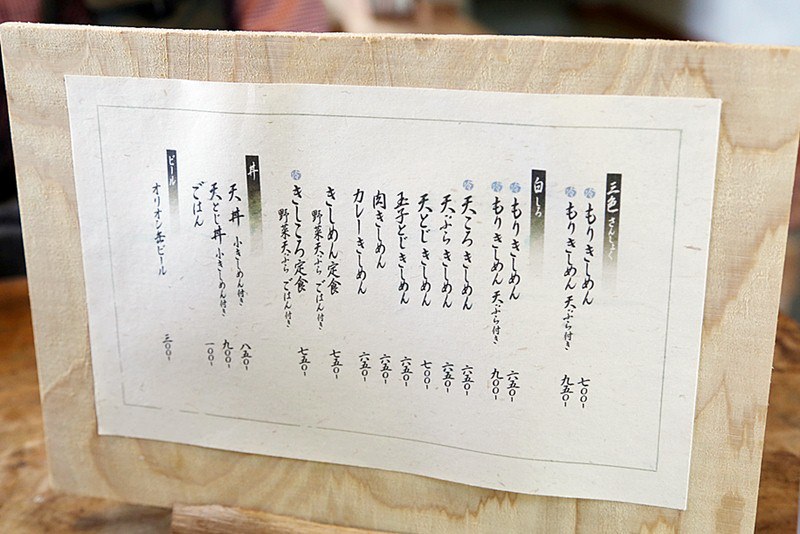 三色 さんしょく
冷 もりきしめん 七〇〇-
冷 もりきしめん 天ぷら付き 九五〇-
白 しろ
冷 もりきしめん 六五〇-
冷 もりきしめん 天ぷら付き 九〇〇-
冷 天ころきしめん 六五〇-
天ぷらきしめん 六五〇-
天とじきしめん 七〇〇-
玉子とじきしめん 六五〇-
肉きしめん 六五〇-
カレーきしめん 六五〇-
きしめん定食
野菜天ぷら ごはん付き 七五〇-
冷 きしころ定食
野菜天ぷら ごはん付き 七五〇-
丼
天丼 小きしめん付き 八五〇-
天とじ丼 小きしめん付き 九〇〇-
ごはん 一〇〇-
ビール
オリオン缶ビール 三〇〇-